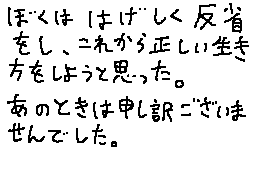 ぼくは はげしく反省
をし、これから正しい生き
方をしようと思った。
あのときは申し訳ございま
せんでした。